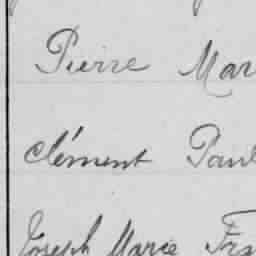 Pierre Mar
Clément Paul
Joseph Marie Fra